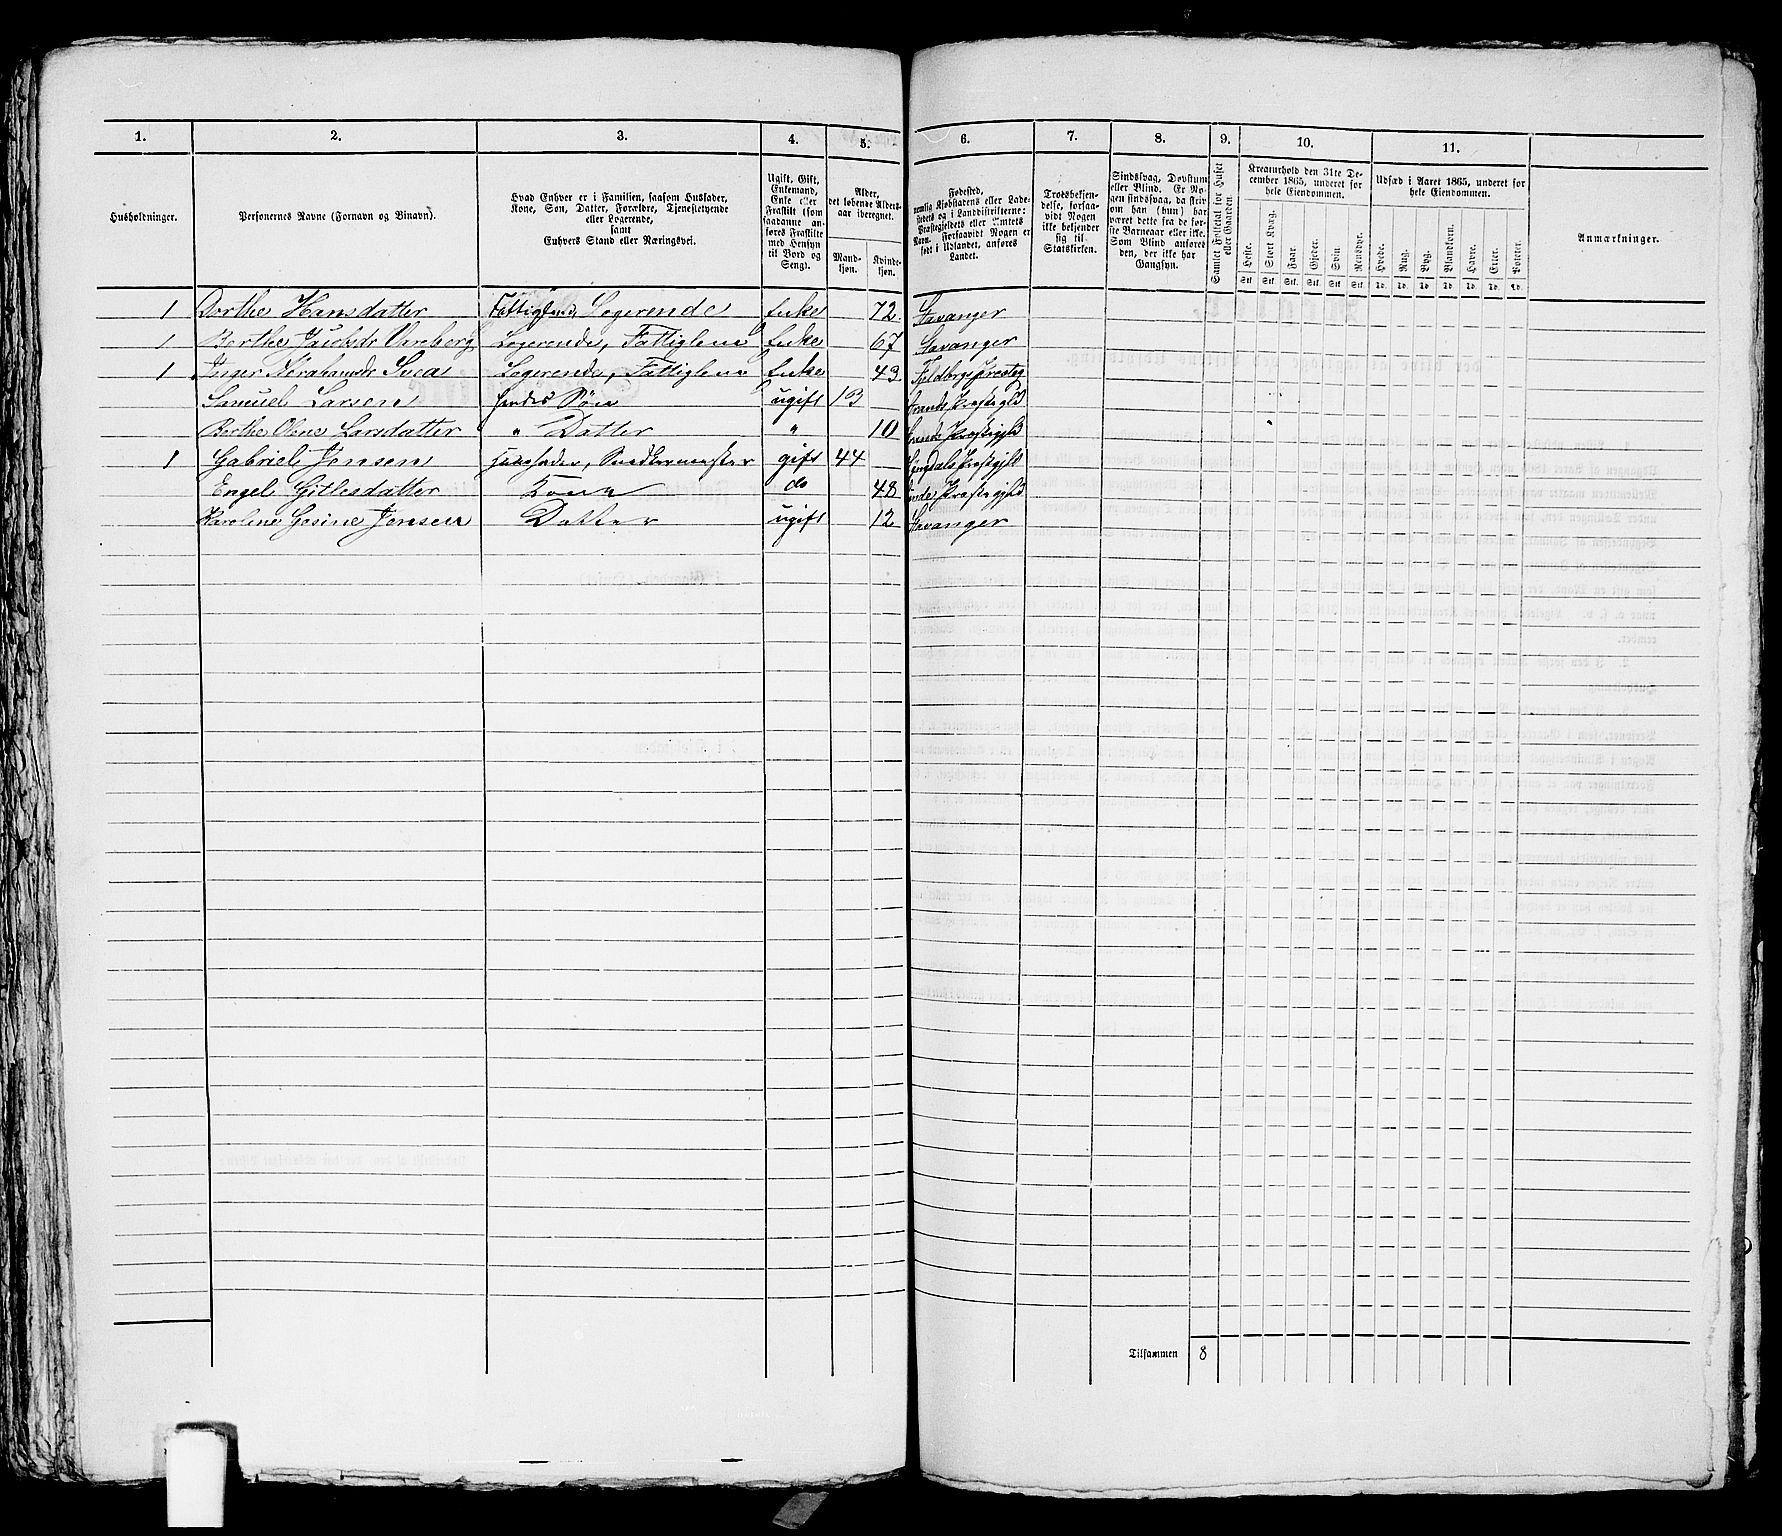 1. 2. 3. 4. 5. 6. 7. 8. 9. 10. 11.
Husholdninger.
Personernes Navne (Fornavn og Binavn).
Hvad Enhver er i Familien, saasom Husfader,
Kone, Søn, Datter, Forældre, Tjenestetyende
eller Logerende,
samt
Enhvers Stand eller Næringsvei.
Ugift, Gift,
Enkemand,
Enke eller
Fraskilt (som
saadanne an-
føres Fraskilte
med Hensyn
til Bord og
Seng).
Alder,
det løbende Alders-
aar iberegnet.
Mand-
kjøn.
Kvinde-
kjøn.
Fødested,
nemlig Kjøbstadens eller Lade-
stedets og i Landdistrikterne:
Præstegjeldets eller Amtets
Navn. Forsaavidt Nogen er
født i Udlandet, anføres
Landet.
Troesbekjen-
delse, forsaa-
vidt Nogen
ikke bekjender
sig til
Statskirken.
Sindssvag, Døvstum
eller Blind. Er No-
gen sindssvag, da skriv
om han (hun) har
været dette fra de før-
ste Barneaar eller ikke.
Som Blind anføres
den, der ikke har
Gangsyn.
Samlet Folketal for Huset
eller Gaarden.
Kreaturhold den 31te De-
cember 1865, underet for
hele Eiendommen.
Heste. Stort Kvæg. Faar. Gjeder. Svin. Rensdyr.
Stk. Stk. Stk. Stk. Stk. Stk.
Udsæd i Aaret 1865, underet for
hele Eiendommen.
Hvede. Rug. Byg. Blandkorn. Havre. Erter. Poteter.
Td. Td. Td. Td. Td. Td. Td.
Anmærkninger.
1 Dorthe Hansdatter Logerende Enke 72 Stavanger
1 Berthe Vareberg Logerende, Fattiglem Enke 67 Stavanger
1 Inger Svea Logerende, Fattiglem Enke 43
Samuel Larsen hendes Søn ugift 13 Strands
Berthe Olene Larsdatter " Datter " 10
1 Gabriel Jensen Husfader, Snedkermester gift 44
Engel Gitlesdatter Kone do 48
Karoline Gosine Jensen Datter ugift 12 Stavanger
Tilsammen 8